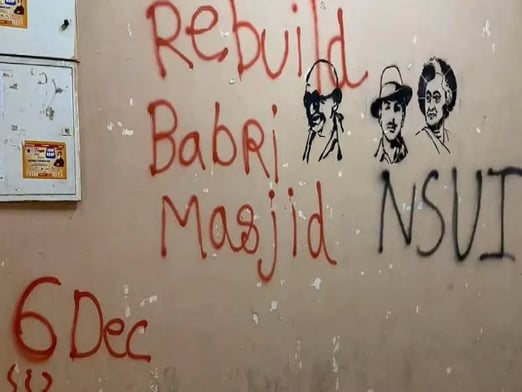 Rebuild
Babri
Masjid
NSUI
6 Dec